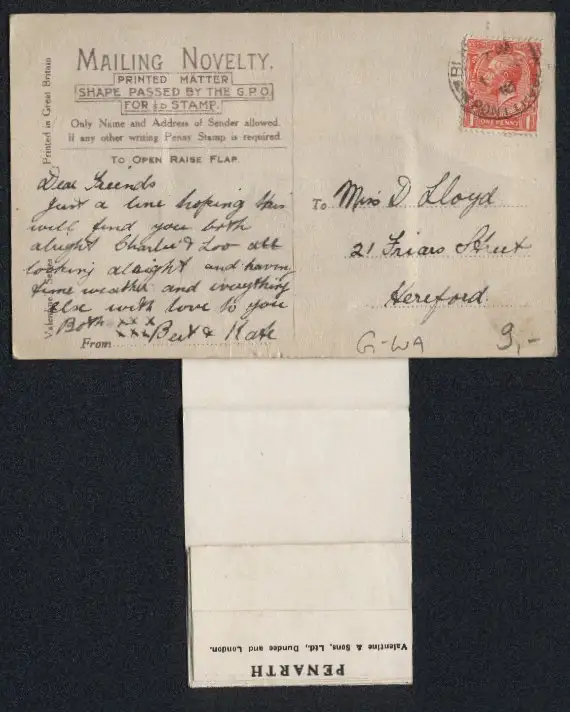 MAILING NOVELTY.
PRINTED MATTER
SHAPE PASSED BY THE G.P.O.
FOR ½D STAMP.
Only Name and Address of Sender allowed.
If any other writing Penny Stamp is required
TO OPEN RAISE FLAP.
Printed in Great Britain
Valentine's Series
Dear Freinds
Just a line hoping this
will find you both
alright Charlie & Loo are
looking alright and having
fine weather and everything
else with love to you
Both xx x
xxx Bert & Kate
From
To Miss D Lloyd
21 Friars Street
Hereford
ONE PENNY
G-WA
9,-
Valentine & Sons, Ltd., Dundee and London.
PENARTH